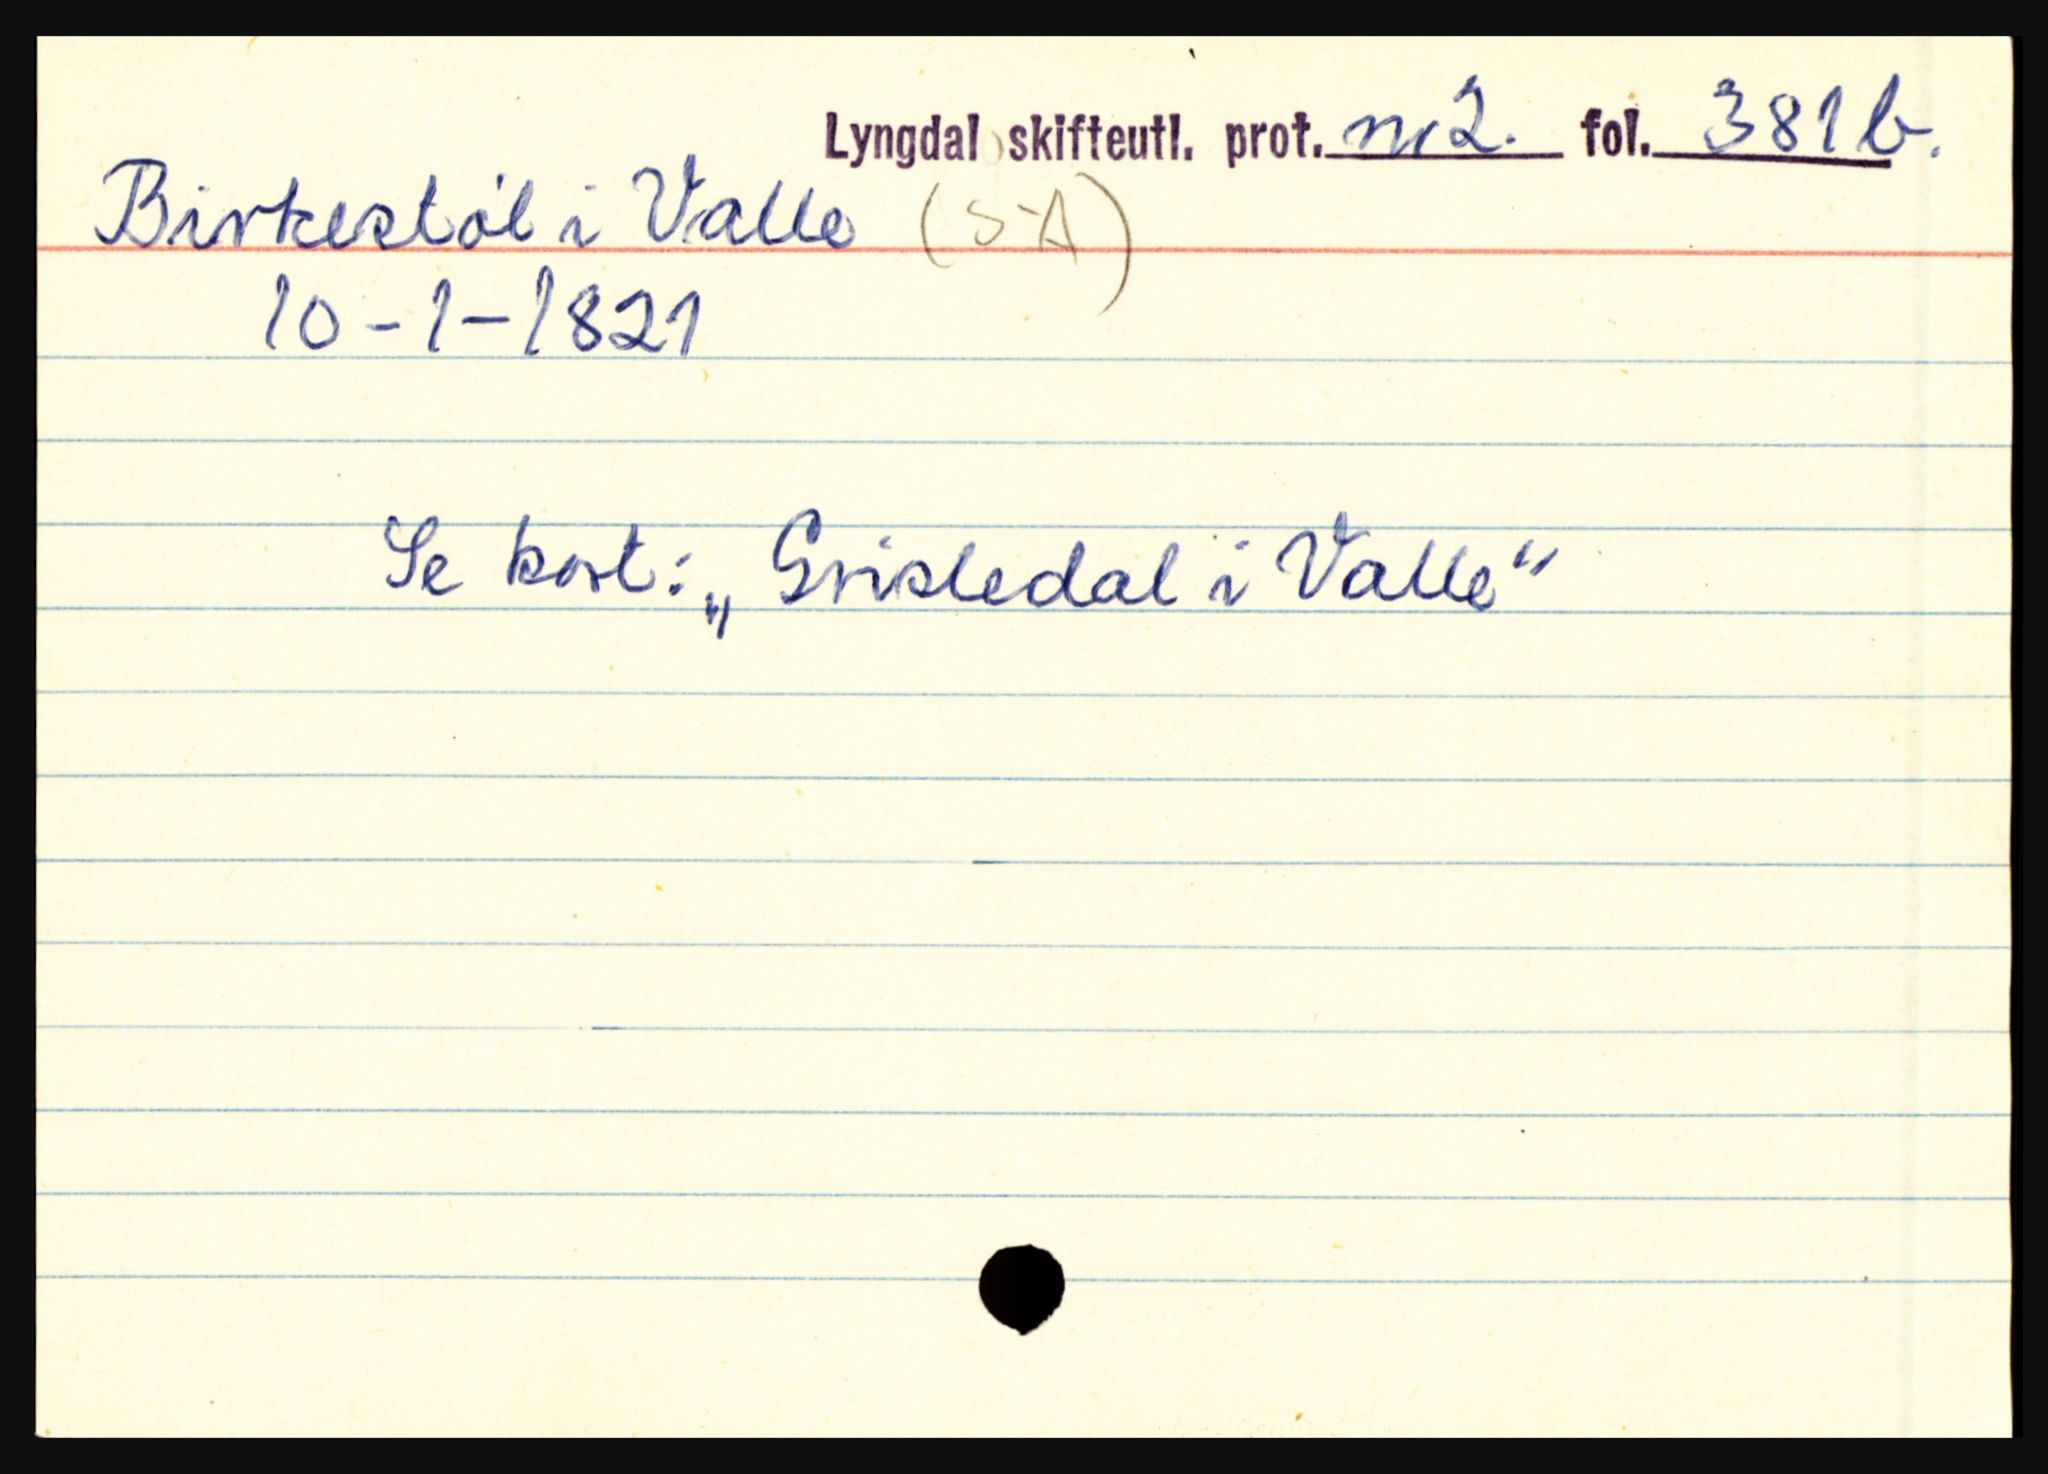 Lyngdal skifteutl. prot. nr 2. fol. 381 b.
Birkestøl i Valle (S-A)
10-1-1821
Se kort: „Grisledal i Valle“